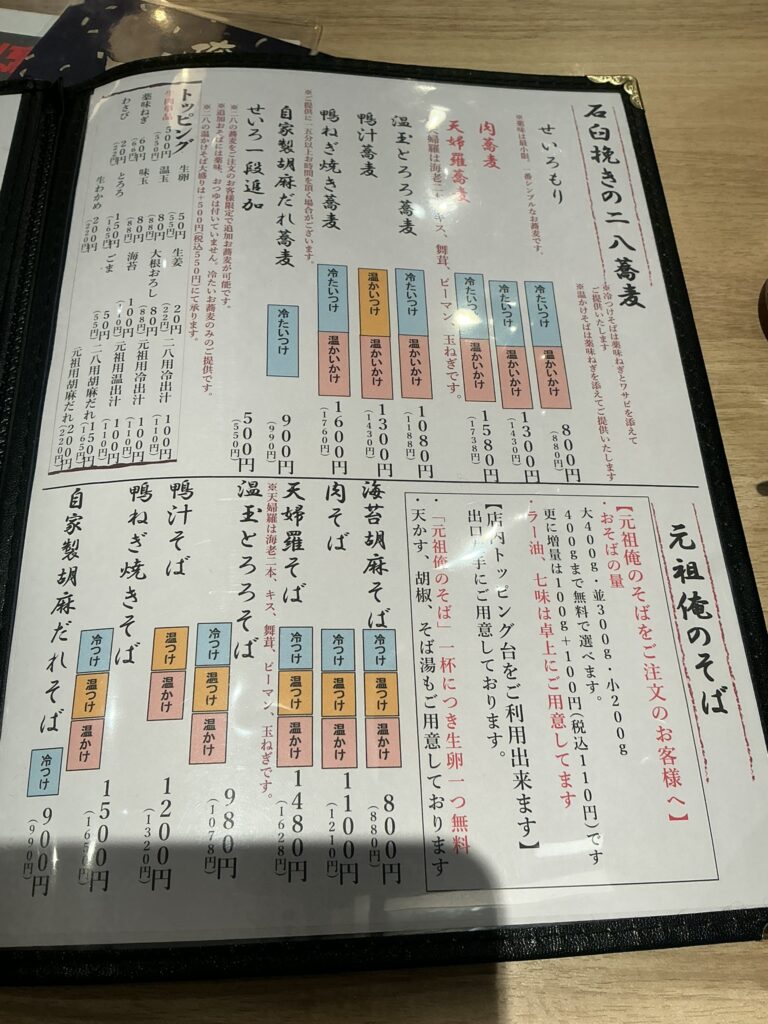 石臼挽きの二八蕎麦
※冷つけそばは薬味ねぎとワサビを添えて
ご提供いたします
※温かけそばは薬味ねぎを添えてご提供いたします
せいろもり
冷たいつけ
温かいかけ
800円
(880円)
※薬味は最小限、一番シンプルなお蕎麦です。
肉蕎麦
冷たいつけ
温かいかけ
1300円
(1430円)
天婦羅蕎麦
冷たいつけ
温かいかけ
1580円
(1738円)
天婦羅は海老二本、キス、舞茸、ピーマン、玉ねぎです。
温玉とろろ蕎麦
冷たいつけ
温かいかけ
1080円
(1188円)
鴨汁蕎麦
温かいつけ
温かいかけ
1300円
(1430円)
鴨ねぎ焼き蕎麦
冷たいつけ
温かいかけ
1600円
(1760円)
※ご提供に一五分以上お時間を頂く場合がございます。
自家製胡麻だれ蕎麦
冷たいつけ
900円
(990円)
せいろ一段追加
500円
(550円)
※二八の蕎麦をご注文のお客様限定で追加お蕎麦が可能です。
※追加おそばには薬味、おつゆは付いていません。冷たいお蕎麦のみのご提供です。
※二八の温かけそば大盛りは+500円(税込550円)にて承ります。
トッピング
生卵 50円 (55円)
生姜 20円 (22円)
二八用冷出汁 100円 (110円)
牛肉単品 500円 (550円)
温玉 80円 (88円)
大根おろし 80円 (88円)
元祖用冷出汁 100円 (110円)
薬味ねぎ 60円 (66円)
味玉 80円 (88円)
海苔 100円 (110円)
元祖用温出汁 100円 (110円)
わさび 20円 (22円)
とろろ 150円 (165円)
ごま 50円 (55円)
二八用胡麻だれ 150円 (165円)
生わかめ 200円 (220円)
元祖用胡麻だれ 200円 (220円)
元祖俺のそば
【元祖俺のそばをご注文のお客様へ】
・おそばの量
大400g・並300g・小200g
400gまで無料で選べます。
更に増量は100g+100円(税込110円)です
ラー油、七味は卓上にご用意してます
【店内トッピング台をご利用出来ます】
出口左手にご用意しております。
・「元祖俺のそば」一杯につき生卵一つ無料
・天かす、胡椒、そば湯もご用意しております
海苔胡麻そば
冷つけ
温つけ
温かけ
800円
(880円)
肉そば
冷つけ
温つけ
温かけ
1100円
(1210円)
天婦羅そば
冷つけ
温つけ
温かけ
1480円
(1628円)
※天婦羅は海老二本、キス、舞茸、ピーマン、玉ねぎです。
温玉とろろそば
冷つけ
温つけ
温かけ
980円
(1078円)
鴨汁そば
温つけ
温かけ
1200円
(1320円)
鴨ねぎ焼きそば
冷つけ
温つけ
温かけ
1500円
(1650円)
自家製胡麻だれそば
冷つけ
900円
(990円)